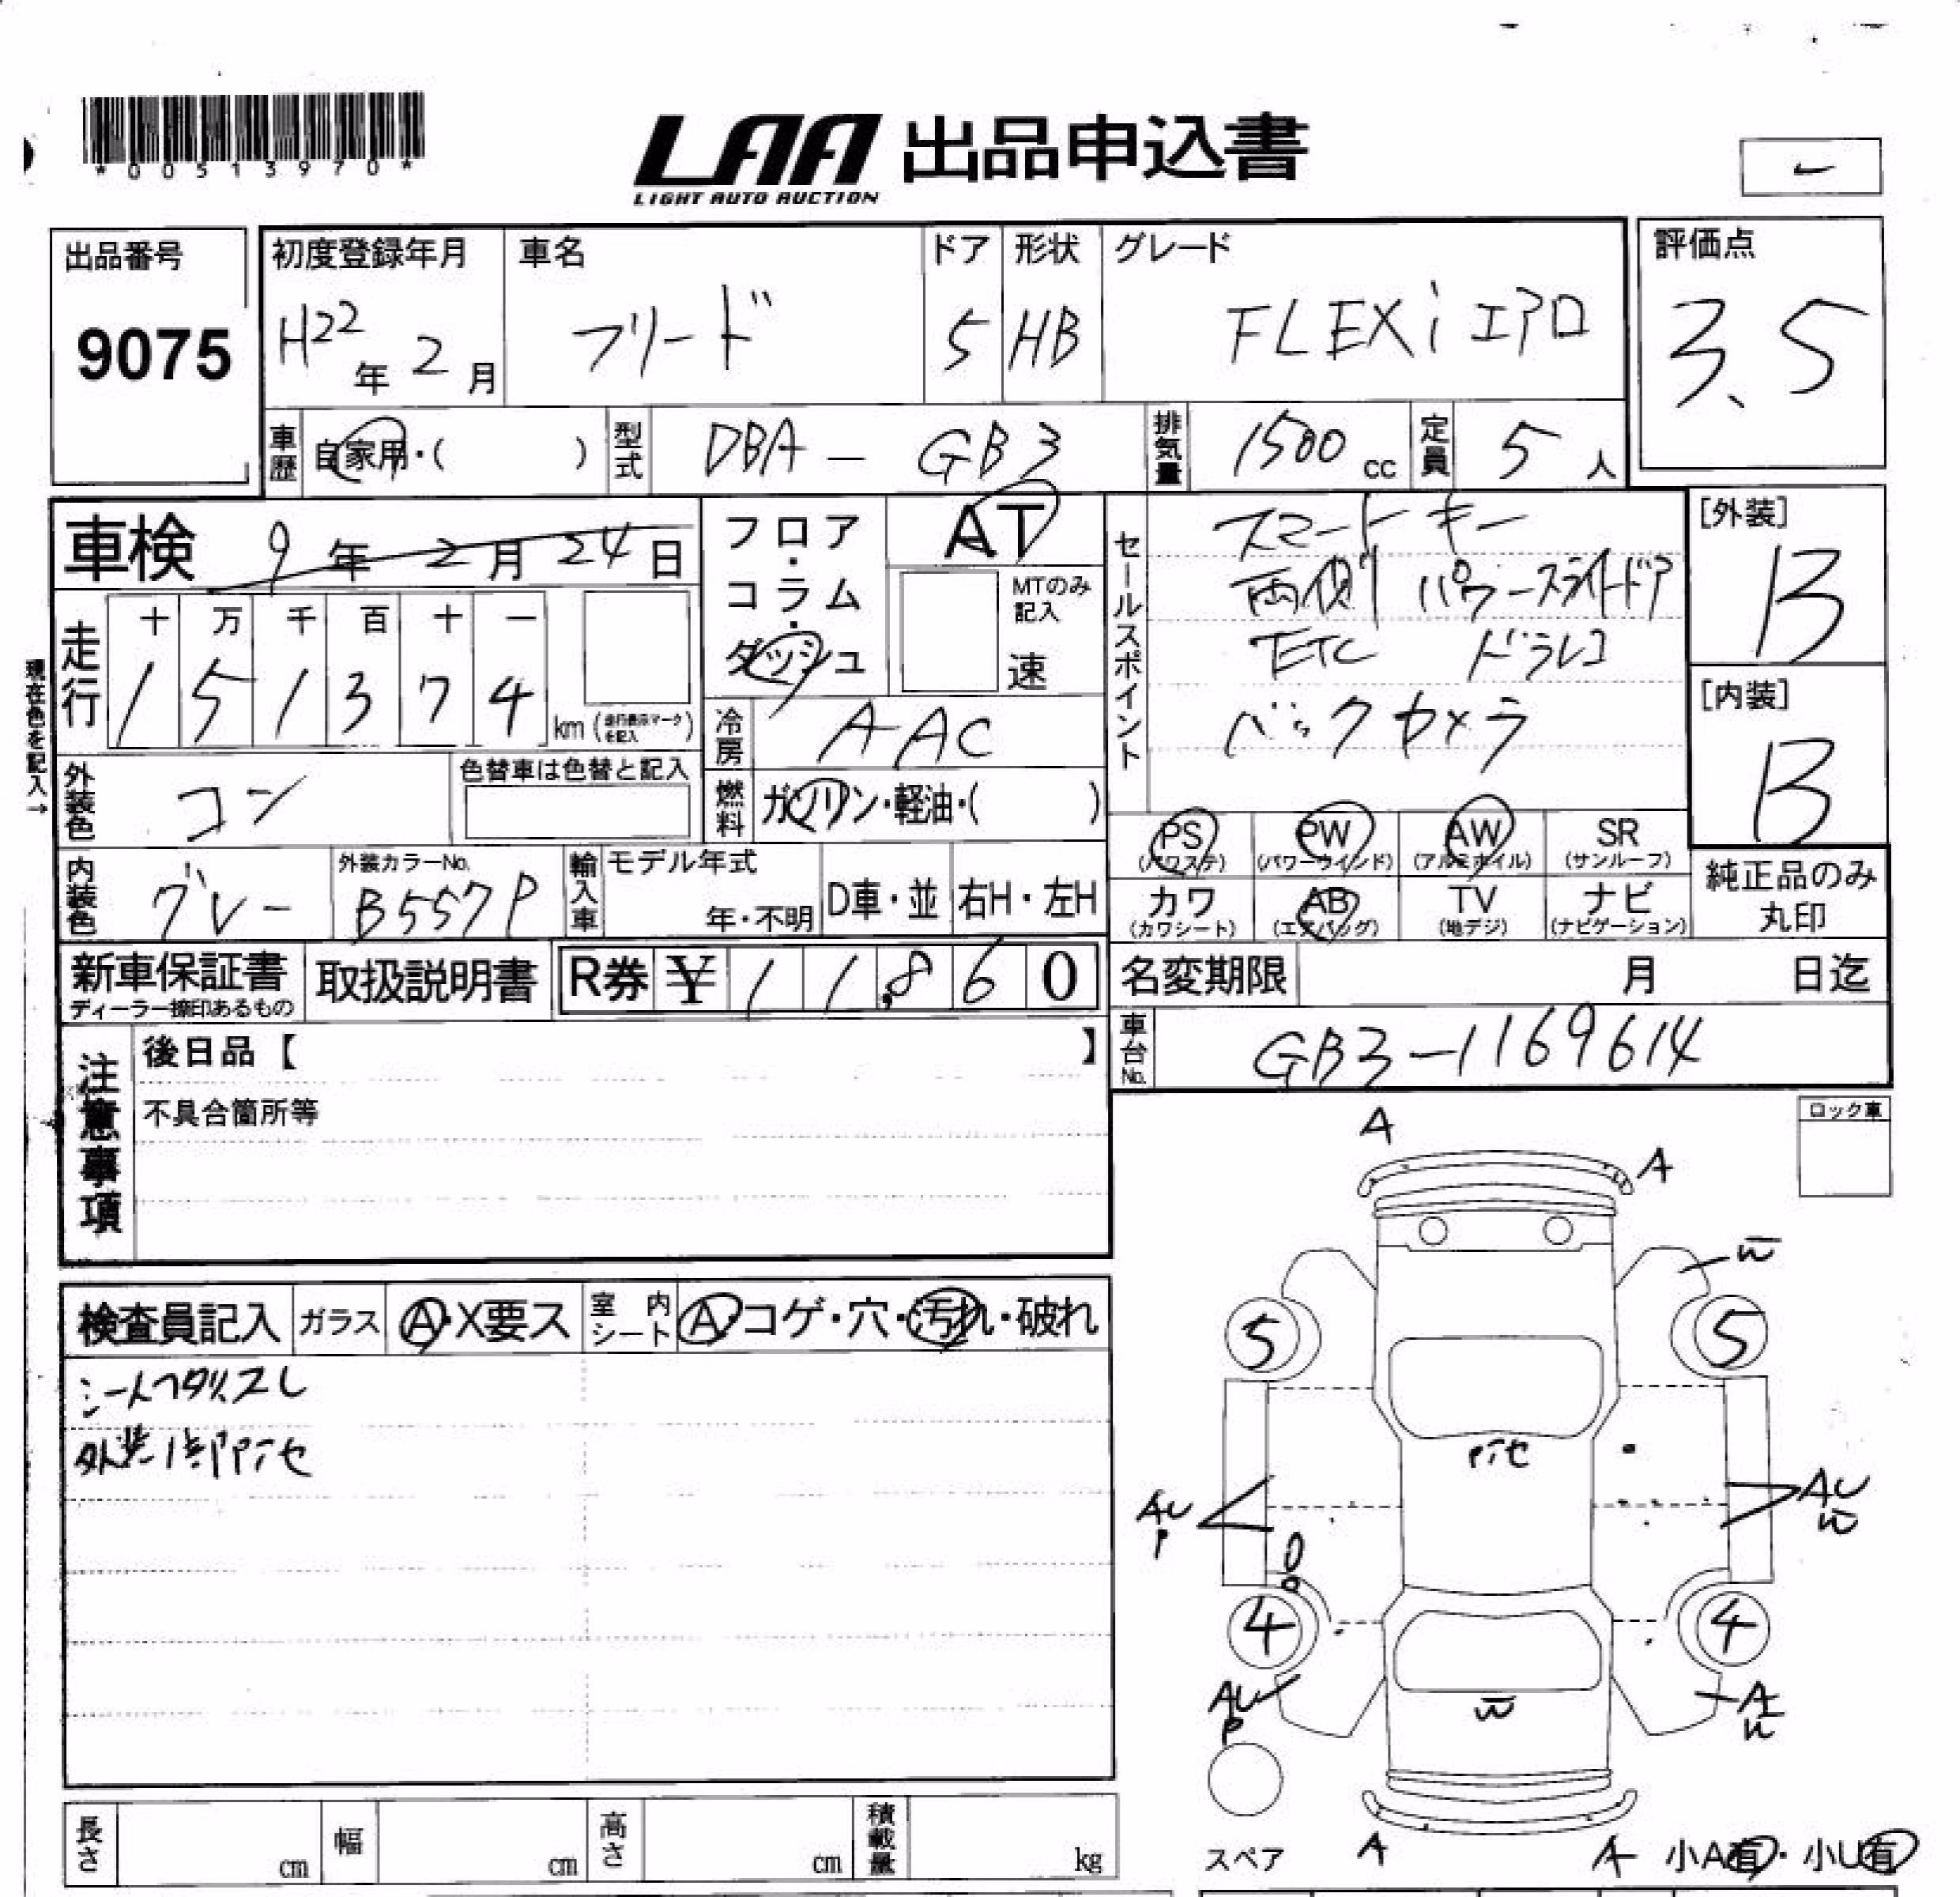 *00513970*
LAA 出品申込書
LIGHT AUTO AUCTION
出品番号
9075
初度登録年月
H22年 2月
車名
フリード
ドア
5
形状
HB
グレード
FLEXi エアロ
評価点
3.5
車歴 自家用・( )
型式 DBA - GB3
排気量 1500 cc
定員 5 人
車検 9年 2月 24日
フロア・コラム・ダッシュ
AT
MTのみ記入
速
セールスポイント
スマートキー
両側 パワースライドドア
ETC ドラレコ
バックカメラ
[外装]
B
[内装]
B
現在色を記入→
走行
十 万 千 百 十 一
1 5 1 3 7 4 km (走行表示マークを記入)
冷房 AAC
外装色 コン
色替車は色替と記入
燃料 ガソリン・軽油・( )
PS (パワステ)
PW (パワーウインド)
AW (アルミホイル)
SR (サンルーフ)
カワ (カワシート)
AB (エアバッグ)
TV (地デジ)
ナビ (ナビゲーション)
純正品のみ丸印
内装色 グレー
外装カラーNo. B557P
輸入車
モデル年式
年・不明
D車・並
右H・左H
新車保証書
ディーラー捺印あるもの
取扱説明書
R券 ¥ 11,860
名変期限 月 日迄
車台No. GB3-1169614
注意事項
後日品【 】
不具合箇所等
ロック車
A
A
W
5
5
検査員記入 ガラス A・X要ス 室内シート A・コゲ・穴・汚れ・破れ
シートヘタリ、スレ
外装1部アセ
アセ
AU
P
AU
W
4
4
AU
P
W
A
W
スペア
A
A
小A有・小U有
長さ cm
幅 cm
高さ cm
積載量 kg